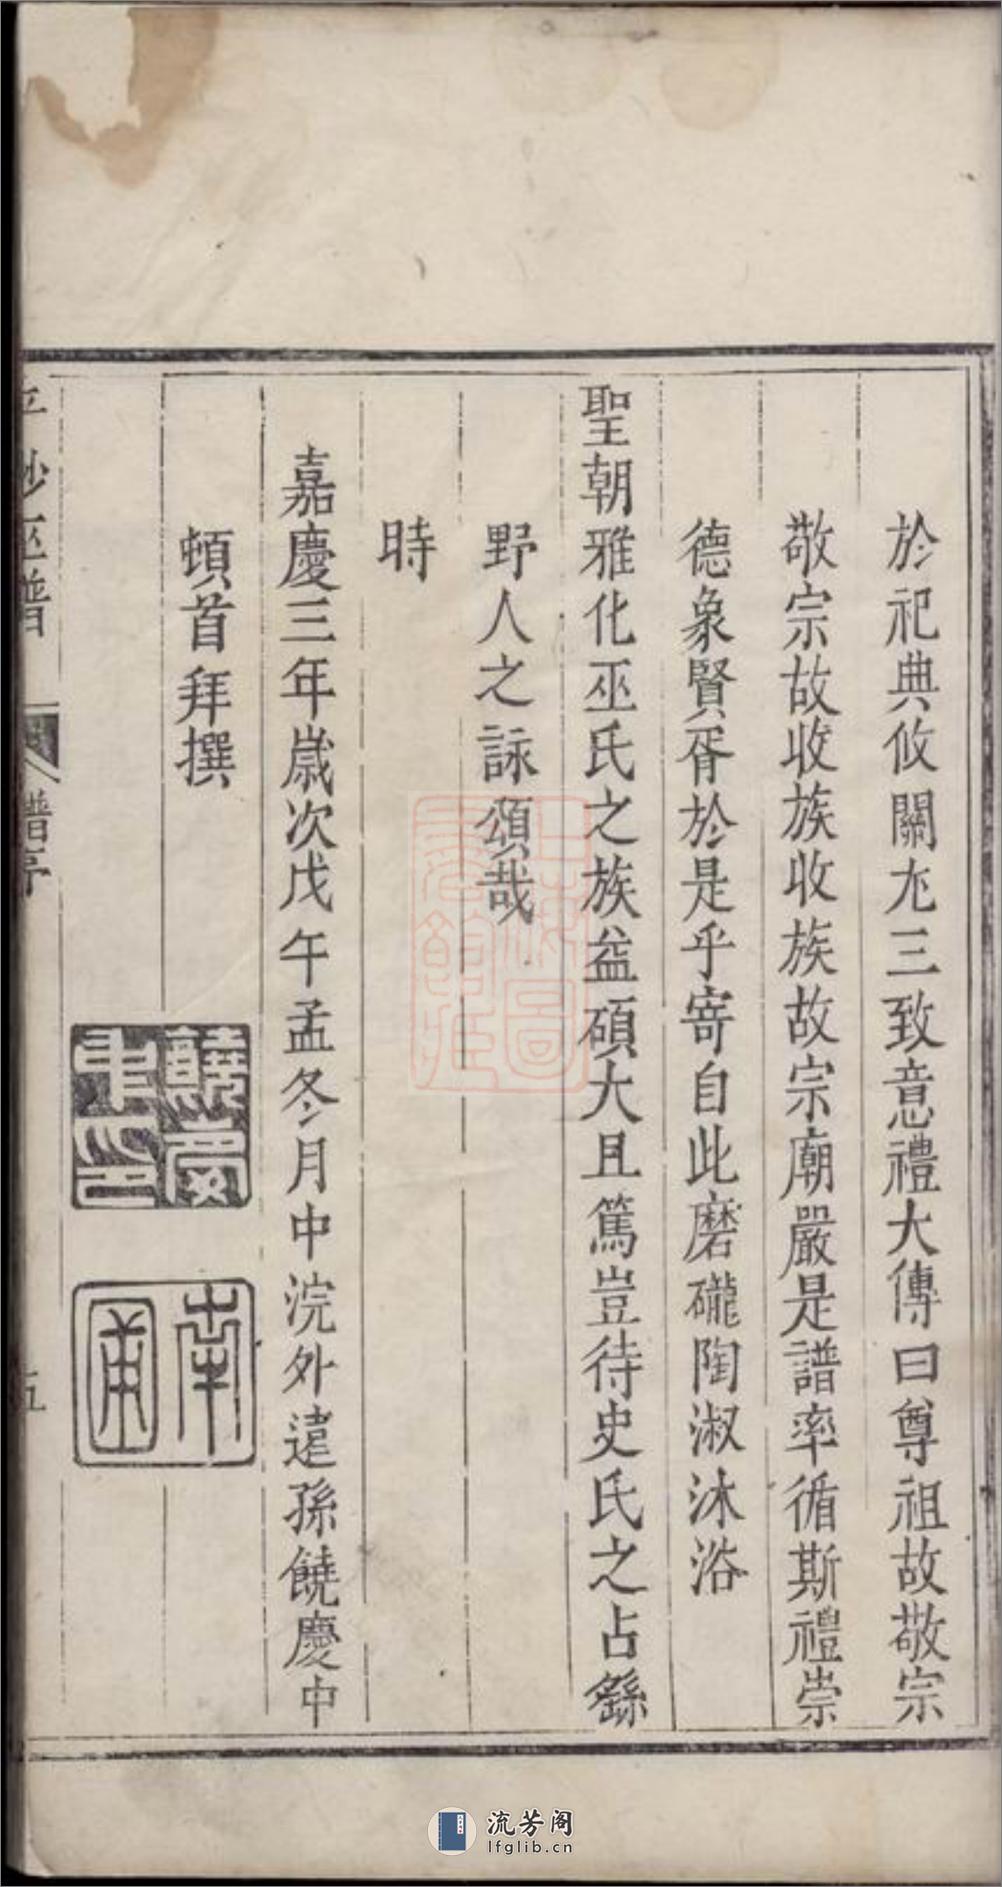 於祀典攸關尤三致意禮大傳曰尊祖故敬宗
敬宗故收族收族故宗廟嚴是譜率循斯禮崇
德象賢胥於是乎寄自此磨礲陶淑沐浴
聖朝雅化巫氏之族益碩大且篤豈待史氏之占繇
野人之詠頌哉
時
嘉慶三年歲次戊午孟冬月中浣外遠孫饒慶中
頓首拜撰
饒慶中印
南甫
譜序
五
流芳阁
lfglib.cn